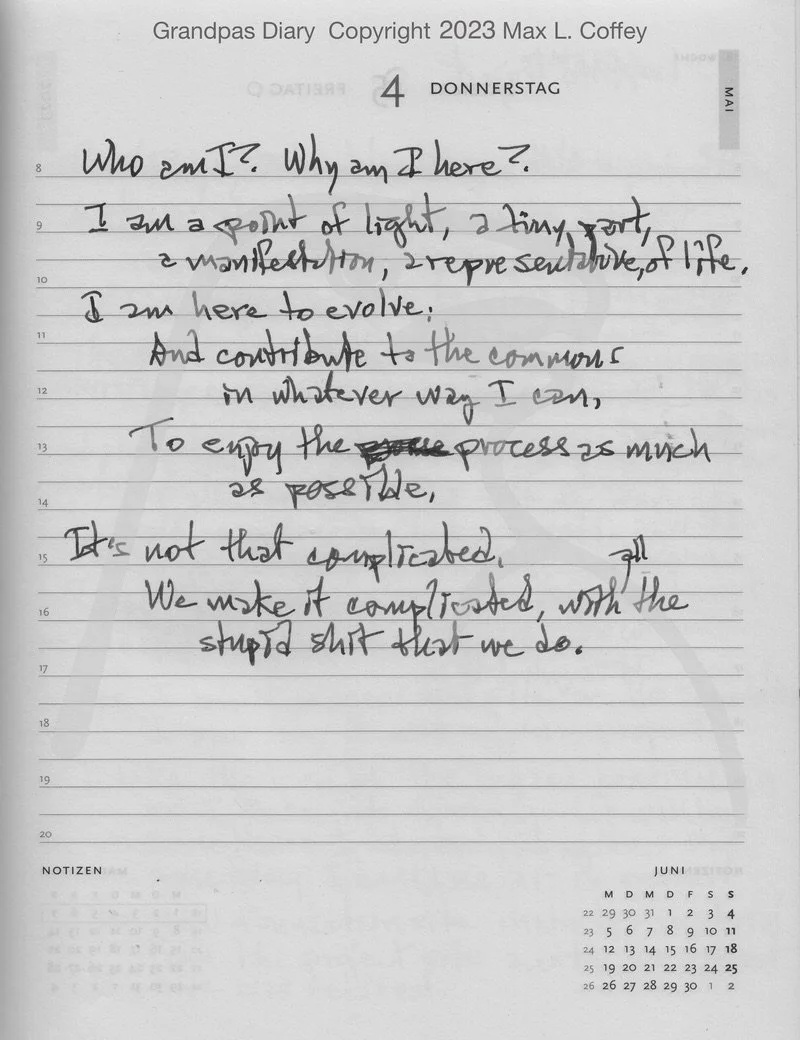 Grandpas Diary Copyright 2023 Max L. Coffey
4 DONNERSTAG
MAI
8 Who am I? Why am I here?
9 I am a point of light, a tiny part,
a manifestation, a representative, of life.
10
I am here to evolve;
11
And contribute to the commons
12 in whatever way I can,
13 To enjoy the process as much
as possible,
14
15 It's not that complicated.
all
16 We make it complicated, with the
stupid shit that we do.
17
18
19
20
NOTIZEN
JUNI
M D M D F S S
22 29 30 31 1 2 3 4
23 5 6 7 8 9 10 11
24 12 13 14 15 16 17 18
25 19 20 21 22 23 24 25
26 26 27 28 29 30 1 2